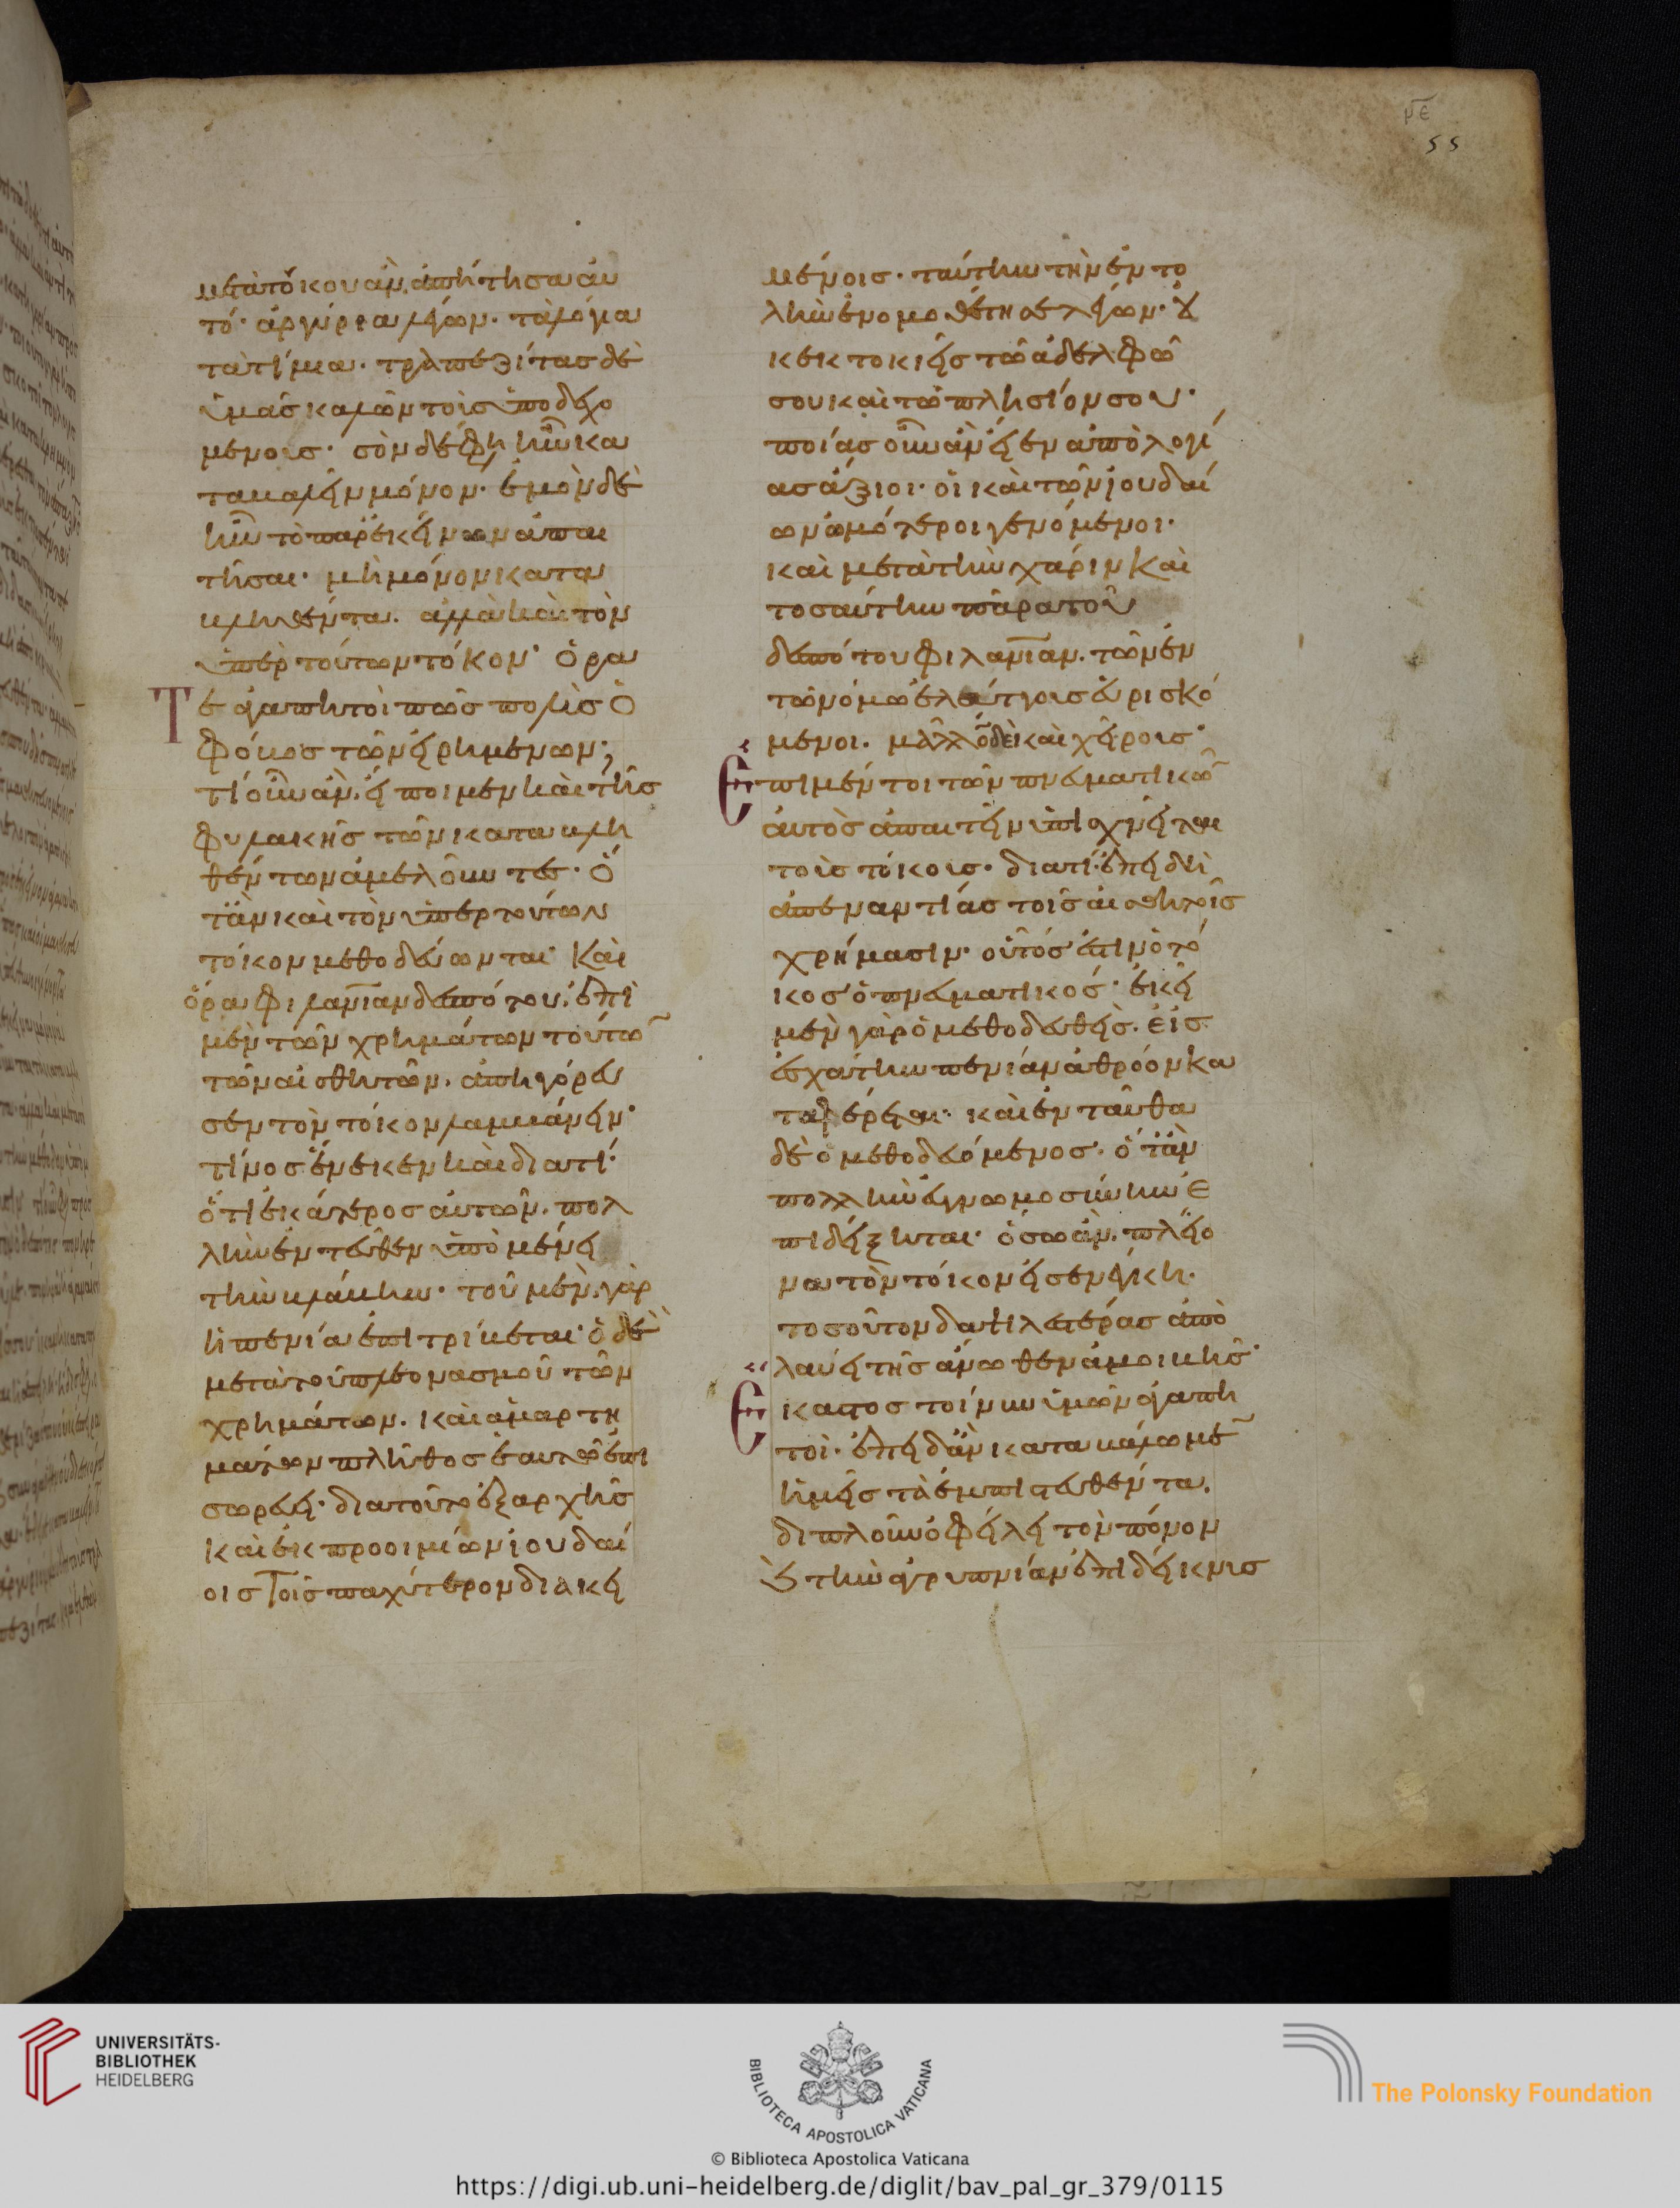 με
55
μετὰ τόκου ἂν ἀπήτησα αὐ
τό· ἀργύρια λέγων. τὰ λόγια
τὰ τίμια. τραπεζίτας δὲ
ὑμᾶς καλῶν τοὺς ὑποδεχο
μένους· σὸν δέ φη ἦν κα
ταβαλεῖν μόνον· ἐμὸν δὲ
ἦν τὸ παρ' ἐκείνων ἀπαι
τῆσαι· μὴ μόνον κατα
βληθέντα. ἀλλὰ καὶ τὸν
ὑπὲρ τούτων τόκον· ὁρᾶ
τε ἀγαπητοὶ πῶς πολὺς ὁ
φόβος τῶν εἰρημένων;
τί οὖν ἂν εἴποιμεν καὶ τῆς
φυλακῆς τῶν καταβλη
θέντων ἀμελοῦντες· ὅ
τἂν καὶ τὸν ὑπὲρ τούτων
τόκον μεθοδεύωνται· καὶ
ὅρα φιλανίαν δεσπότου, ἐπὶ
μὲν τῶν χρημάτων τούτω
τῶν αἰσθητῶν. ἀπηγόρευ
σεν τὸν τόκον λαμβάνειν·
τίνος ἕνεκεν καὶ διατί·
ὅτι ἑκάτερος αὐτῶν. πολ
λὴν ἐντεῦθεν ὑπομένει
τὴν βλάβην· τοῦ μὲν γὰρ
ἡ πενία ἐπιτρίβεται· ὁ δὲ
μετὰ τοῦ πλεονασμοῦ τῶν
χρημάτων. καὶ ἁμαρτη
μάτων πλῆθος ἑαυτῶ ἐπι
σωρεύει· διατοῦτο ἐξαρχῆς
καὶ ἐκ προοιμίων ἰουδαί
οις τοῖς παχύτερον διακει
μένοις. ταύτην τὴν ἐντο
λὴν ἐνομοθέτησε λέγων· οὐ
κ ἐκτοκιεῖς τῶ ἀδελφῶ
σου καὶ τῶ πλησίον σου·
ποίας οὖν ἂν εἶεν ἀπολογί
ας ἄξιοι· οἱ καὶ τῶν ἰουδαί
ων ὠμότεροι γενόμενοι·
καὶ μετὰ τὴν χάριν καὶ
τοσαύτην παρὰ τοῦ
δεσπότου φιλανίαν. τῶν ἐν
τῶ νόμω ἐλάττους εὑρισκό
μενοι. μᾶλλον δὲ καὶ χείρους·
Ἐπὶ μέντοι τῶν πνευματικῶ
αὐτὸς ἀπαιτεῖν ὑπισχνεῖται
τοὺς τόκους· διατί· ἐπειδὴ
ἀπεναντίας τοῖς αἰσθητοῖς
χρήμασιν· οὗτός ἐστιν ὁ τό
κος ὁ πνευματικός· ἐκεῖ
μὲν γὰρ ὁ μεθοδευθεὶς. εἰς
ἐσχάτην πενίαν ἀθρόον κα
ταφέρεται· καὶ ἐνταῦθα
δὲ ὁ μεθοδευόμενος. ὅτἂν
πολλὴν εὐγνωμοσύνην ἐ
πιδείξηται· ὅσω ἂν πλείο
να τὸν τόκον εἰσενέγκη·
τοσοῦτον δαψιλεστέρας ἀπο
λαύει τῆς ἄνωθεν ἀμοιβῆς·
Ἕκαστος τοίνυν ὑμῶν ἀγαπη
τοὶ· ἐπειδἂν καταβάλωμε
ἡμεῖς τὰ ἐμπιστευθέντα.
διπλοῦν ὀφείλει τὸν πόνον
καὶ τὴν ἀγρυπνίαν ἐπιδείκνυσ
UNIVERSITÄTS-
BIBLIOTHEK
HEIDELBERG
BIBLIOTECA APOSTOLICA VATICANA
The Polonsky Foundation
© Biblioteca Apostolica Vaticana
https://digi.ub.uni-heidelberg.de/diglit/bav_pal_gr_379/0115